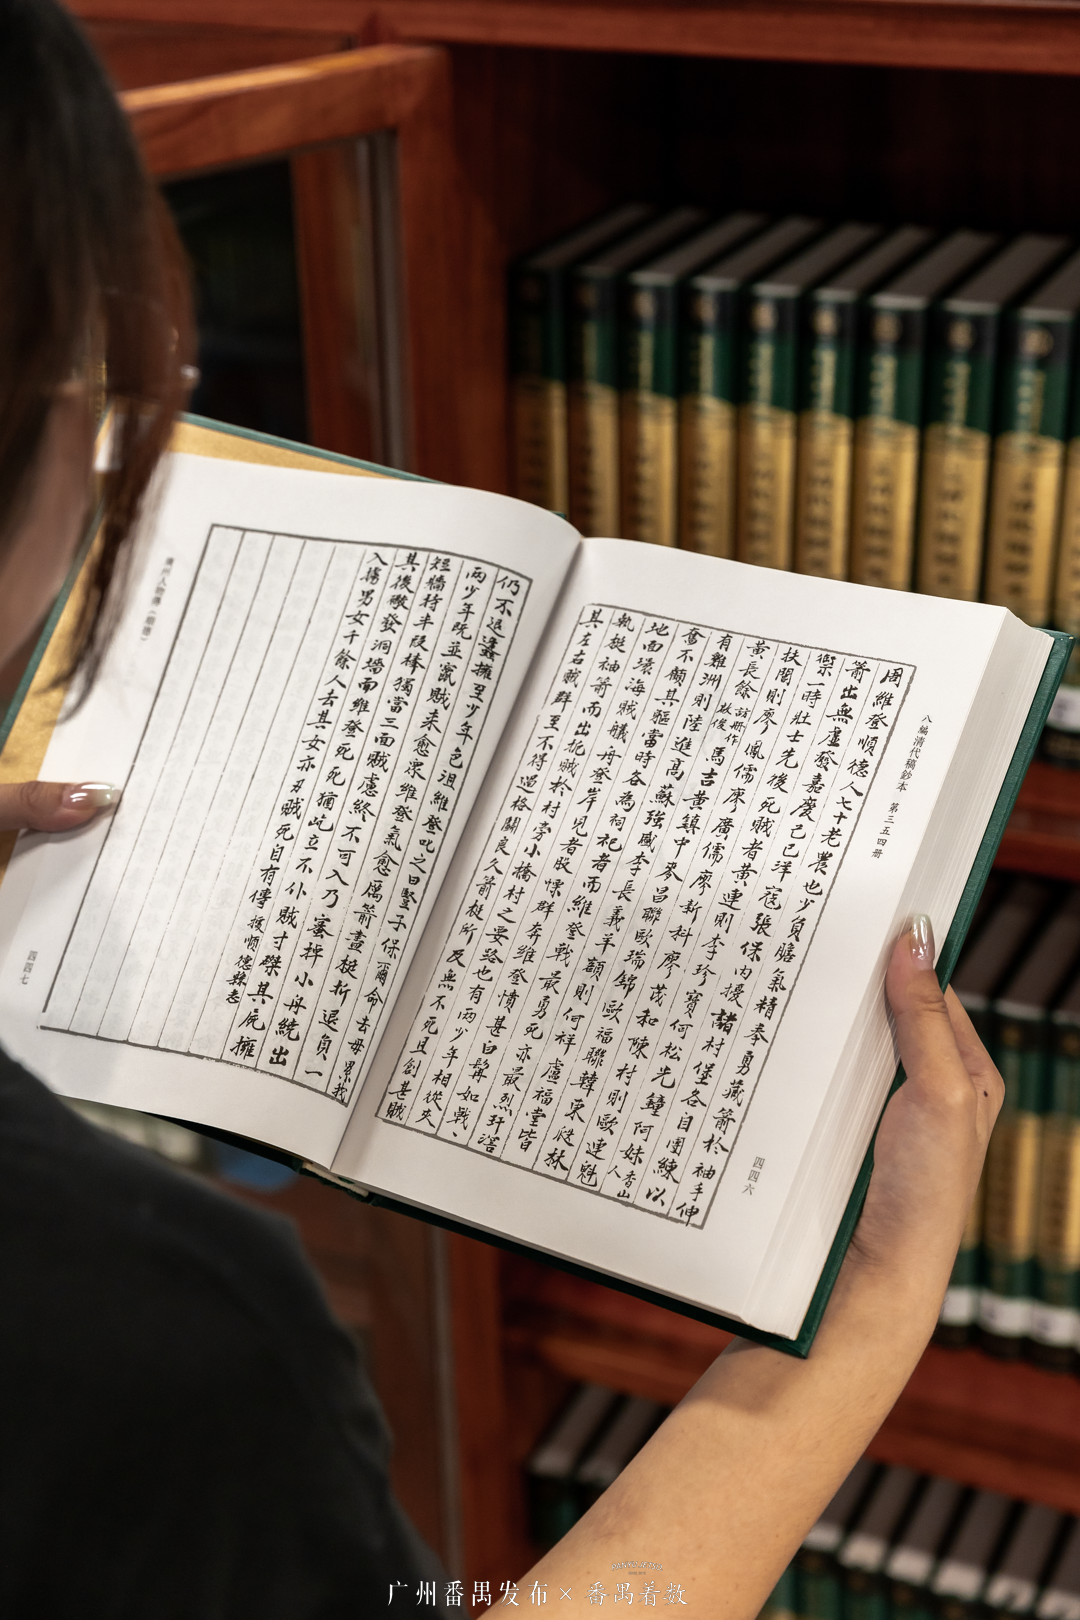 八編清代稿鈔本　第三五四册
周維登順德人七十老農也少負膽氣精拳勇藏箭於袖手伸
箭出無虛發嘉慶己巳洋寇張保內擾諸村堡各自團練以
禦一時壯士先後死賊者黃連則李珍寶何松光鐘何妹香山人
扶閭則廖鳳儒廖廣儒廖新科廖茂和陳村則歐連魁
黃長餘
有難洲則陸進高蘇強盛李長義羊額則何祥盧福堂皆
奮不顧其軀當時各為祠祀者而維登戰最勇死亦最烈
地面瓌海賊艤舟登岸見者股慄群奔維登憤甚白髯如戟、
執梃袖箭而出扼賊於村旁小橋村之要路也有兩少年相從夾
其左右賊群至不得過格鬭良久箭梃所及無不死且創甚賊
四四六
仍不退蠭擁至少年色沮維登叱之曰豎子保爾命去毋累我
兩少年既並竄賊來愈眾維登氣愈厲箭盡梃折退負一
短牆持半段棒獨當三面賊慮終不可入乃密掉小舟繞出
其後礮發洞墻而維登死死猶屹立不仆賊寸磔其屍擁
入掠男女千餘人去其女亦刃賊死自有傳 援順德縣志
四四七
广州番禺发布×番禺着数